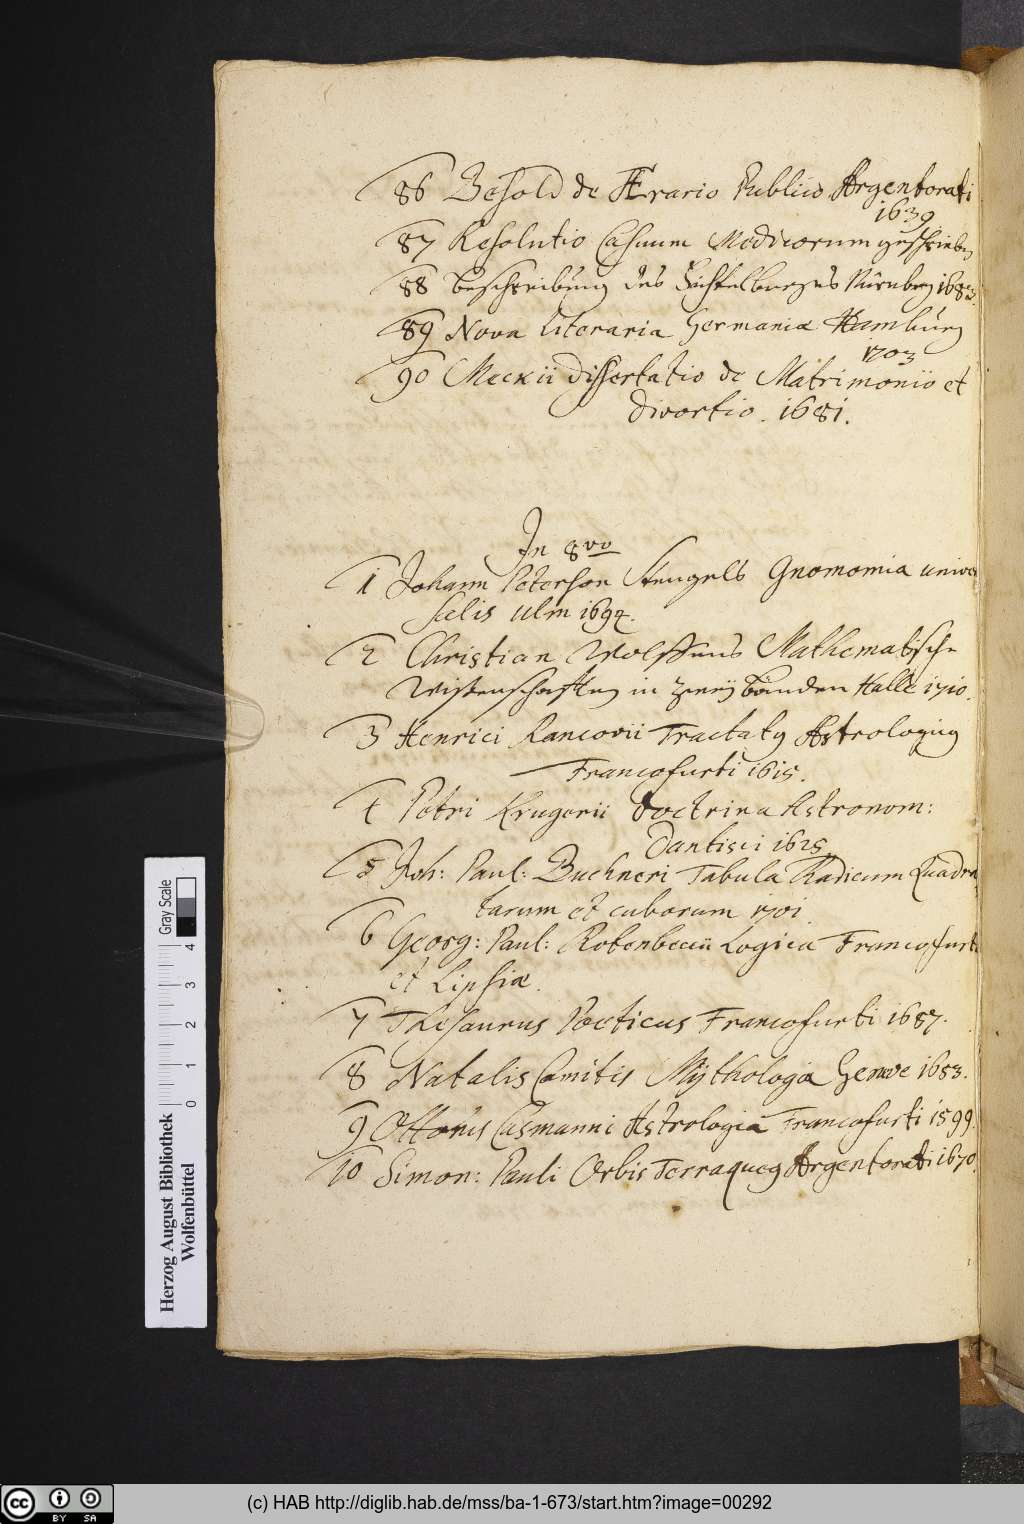 86 Besold de Ærario Publico Argentorati
1639
87 Resolutio Casuum Medicorum geschrieben
88 Beschreibung des Fichtelberges Nürnberg 1683.
89 Nova Literaria Germaniæ Hamburg
1703
90 Meckii dissertatio de Matrimonio et
divortio. 1681.
In 8vo
1 Johann Peterson Stengels Gnomomia univer
salis Ulm 1694.
2 Christian Wolffens Mathematische
Wissenschafften in zweij Bänden Halle 1710.
3 Henrici Rancovii Tractatg Astrologicg
Francofurti 1615.
4 Petri Krugerii Doctrina Astronom:
Dantisci 1625
5 Joh: Paul: Buchneri Tabula Radicum Quadra
tarum et cuborum 1701.
6 Georg: Paul: Rötenbeccii Logica Francofurti
et Lipsiæ.
7 Thesaurus Poeticus Francofurti 1687.
8 Natalis Comitis Mythologia Geneve 1653.
9 Ottonis Casmanni Astrologia Francofurti 1599.
10 Simon: Pauli Orbis Terraqueg Argentorati 1670.
Gray Scale
0 1 2 3 4
Herzog August Bibliothek
Wolfenbüttel
cc BY SA
(c) HAB http://diglib.hab.de/mss/ba-1-673/start.htm?image=00292